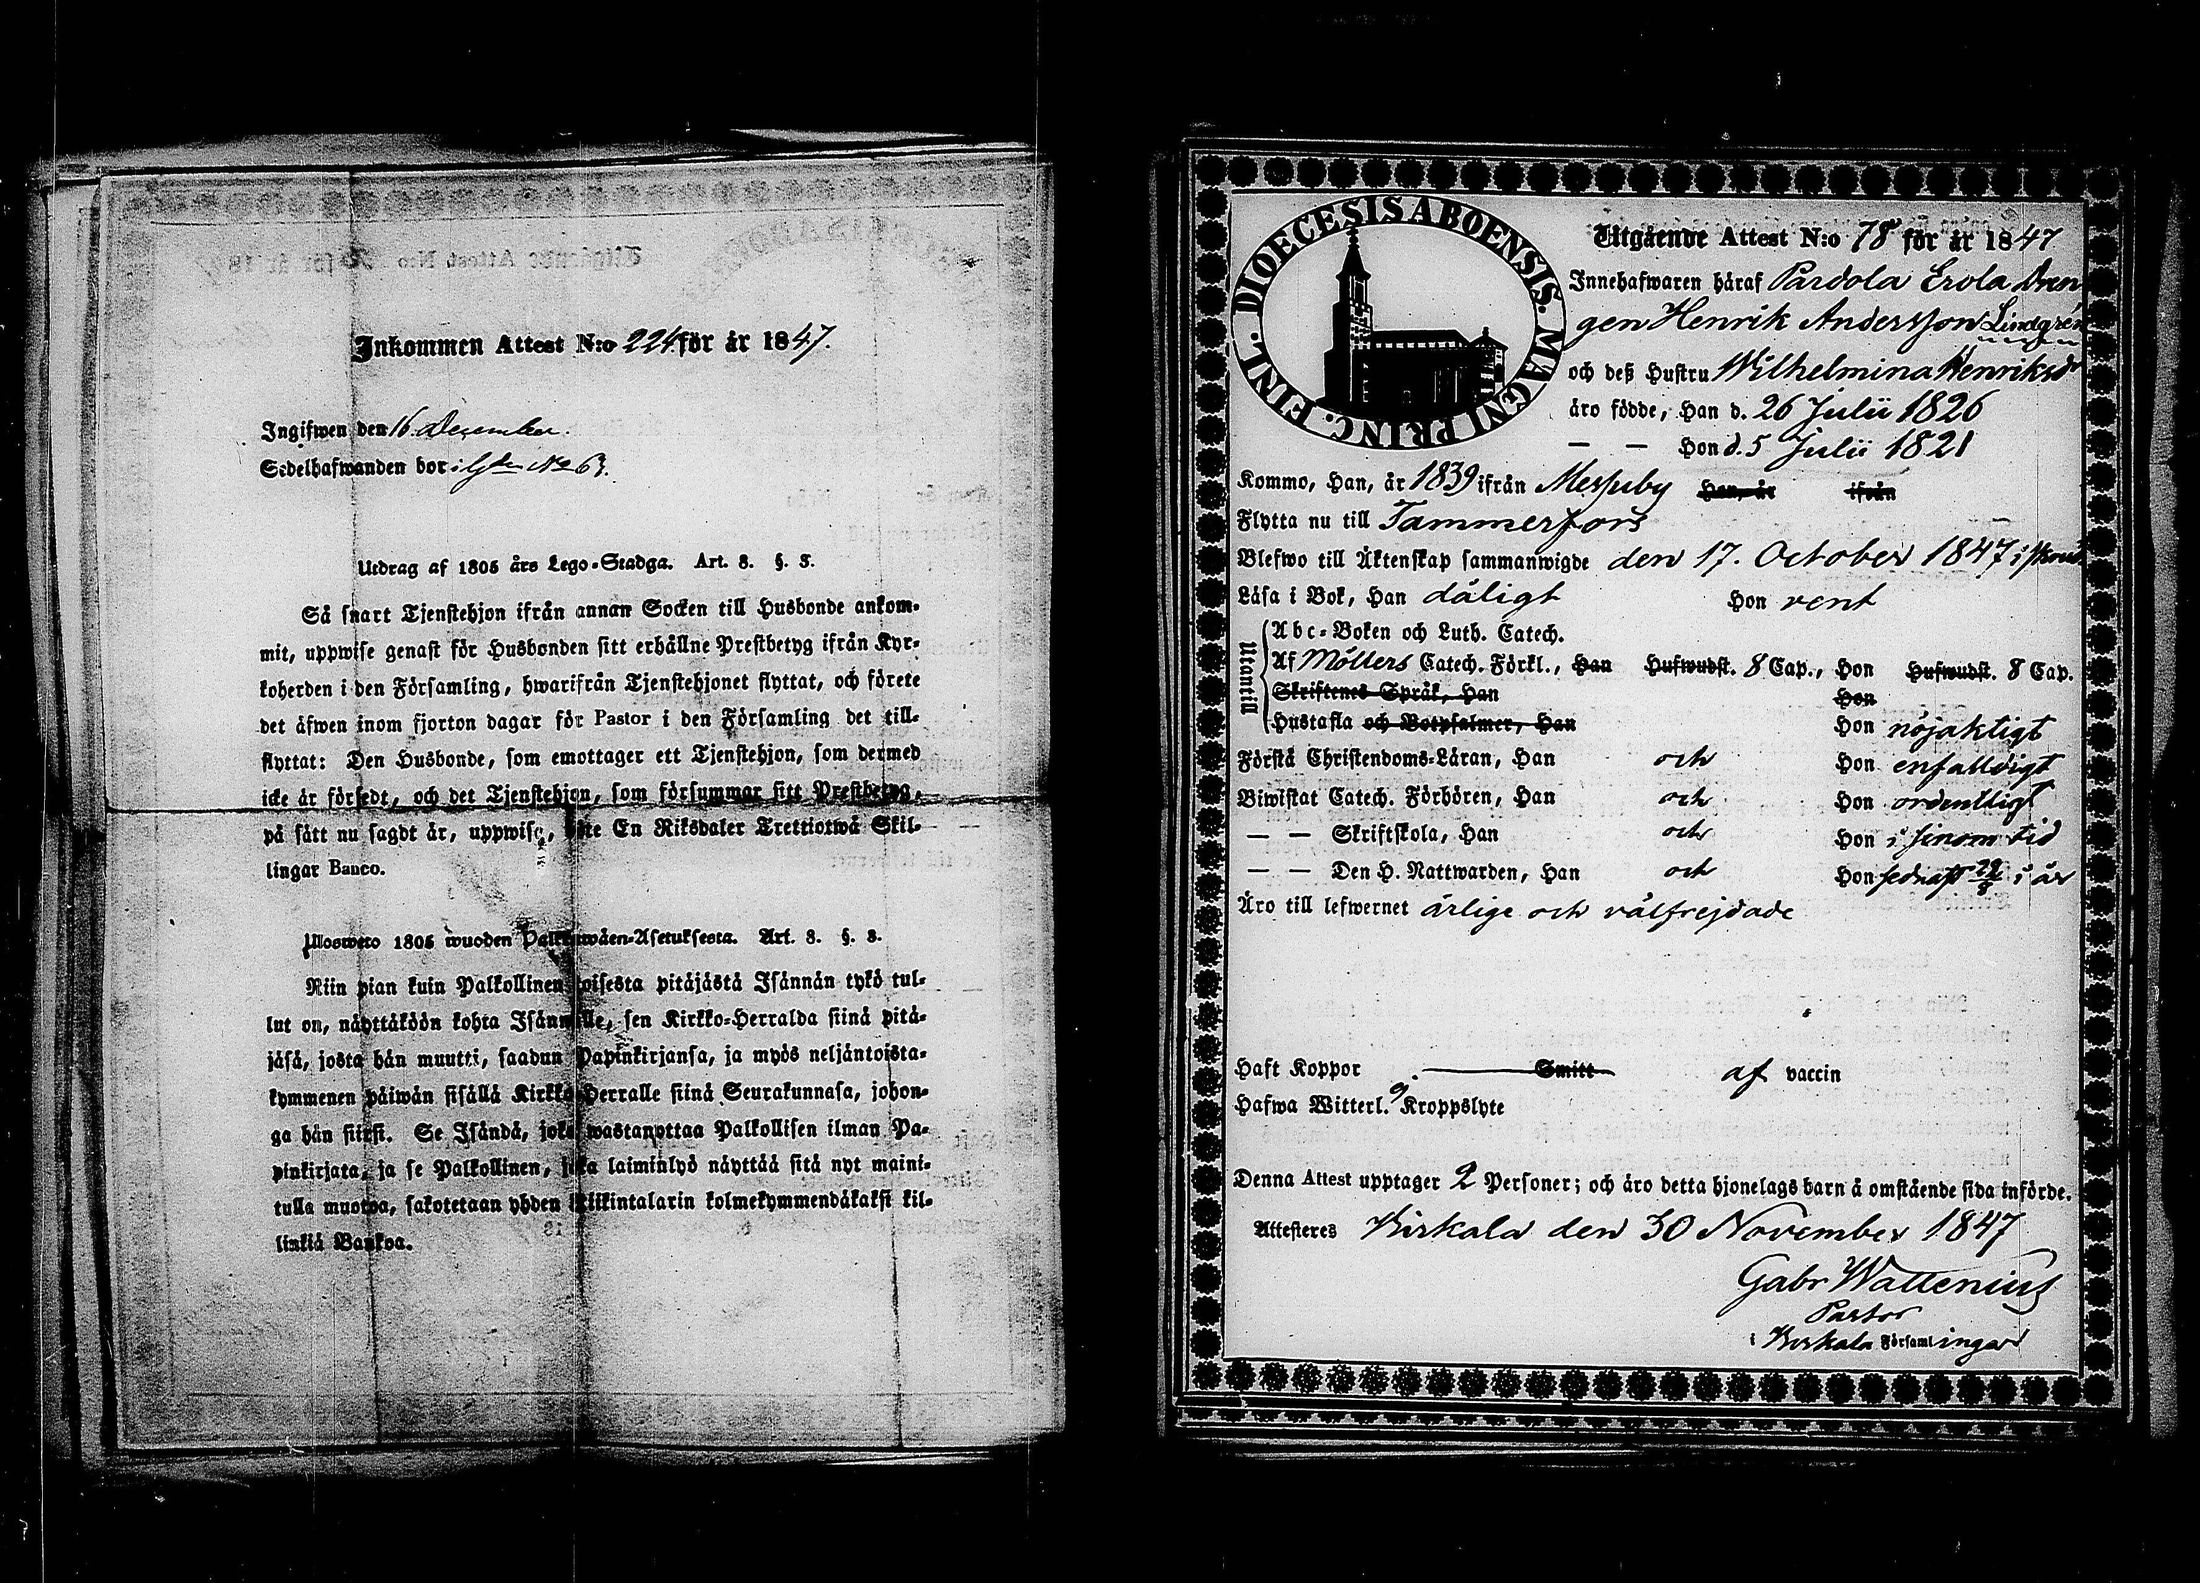 Inkommen Attest N:o 224 för år 1847.
Ingifwen den 16 December.
Sedelhafwanden bor i No 63.
Utdrag af 1805 års Lego-Stadga. Art. 8. §. 3.
Så snart Tjenstehjon ifrån annan Socken till Husbonde ankom-
mit, uppwise genast för Husbonden sitt erhållne Prestbetyg ifrån Kyr-
koherden i den Församling, hwarifrån Tjenstehjonet flyttat, och förete
det äfwen inom fjorton dagar för Pastor i den Församling det till-
flyttat: Den Husbonde, som emottager ett Tjenstehjon, som dermed
icke är försedt, och det Tjenstehjon, som försummar sitt Prestbetyg,
på sätt nu sagdt är, uppwisa, böte En Riksdaler Trettiotwå Skil-
lingar Banco.
Ulosweto 1805 wuoden Palkkawäen-Asetuksesta. Art. 8. §. 3.
Niin pian kuin Palkollinen toisesta pitäjästä Isännän tykö tul-
lut on, näyttäköön kohta Isännälle, sen Kirkko-Herralda siinä pitä-
jäsä, josta hän muutti, saadun Papinkirjansa, ja myös neljäntoista-
kymmenen päiwän sisällä Kirkko Herralle siinä Seurakunnasa, johon-
ga hän siirsi. Se Isändä, joka wastanottaa Palkollisen ilman Pa-
pinkirjata, ja se Palkollinen, joka laiminlyö näyttää sitä nyt maini-
tulla muotoa, sakotetaan yhden Riikintalarin kolmekymmendäkaksi kil-
linkiä Bankoa.
DIOECESIS ABOENSIS. MAGNI PRINC. FINL.
Utgående Attest N:o 78 för år 1847
Innehafwaren häraf Pardola Erola Dren
gen Henrik Andersson Lindgrén
och deß Hustru Wilhelmina Henriksd
äro födde, Han d. 26 Julii 1826
— — Hon d. 5 Julii 1821
Kommo, Han, år 1839 ifrån Messuby Hon, år ifrån
Flytta nu till Tammerfors
Blefwo till Äktenskap sammanwigde den 17. October 1847
Läsa i Bok, Han dåligt Hon rent
Utantill
Abc-Boken och Luth. Catech.
Af Möllers Catech. Förkl., Han Hufwudst. 8 Cap., Hon Hufwudst. 8 Cap.
Skriftenes Språk, Han Hon
Hustafla och Botpsalmer, Han Hon nöjaktigt
Förstå Christendoms-Läran, Han och Hon enfalldigt
Biwistat Catech. Förhören, Han och Hon ordentligt
— — Skriftskola, Han och Hon i sinom tid
— — Den H. Nattwarden, Han och Hon sednast 29/8 i år
Äro till lefwernet ärlige och välfrejdade
Haft Koppor Smitt af vaccin
Hafwa Witterl. Kroppslyte
Denna Attest upptager 2 Personer; och äro detta hjonelags barn å omstående sida införde.
Attesteres Birkala den 30 November 1847
Gabr Wattenius
Pastor
i Birkala Församlingar